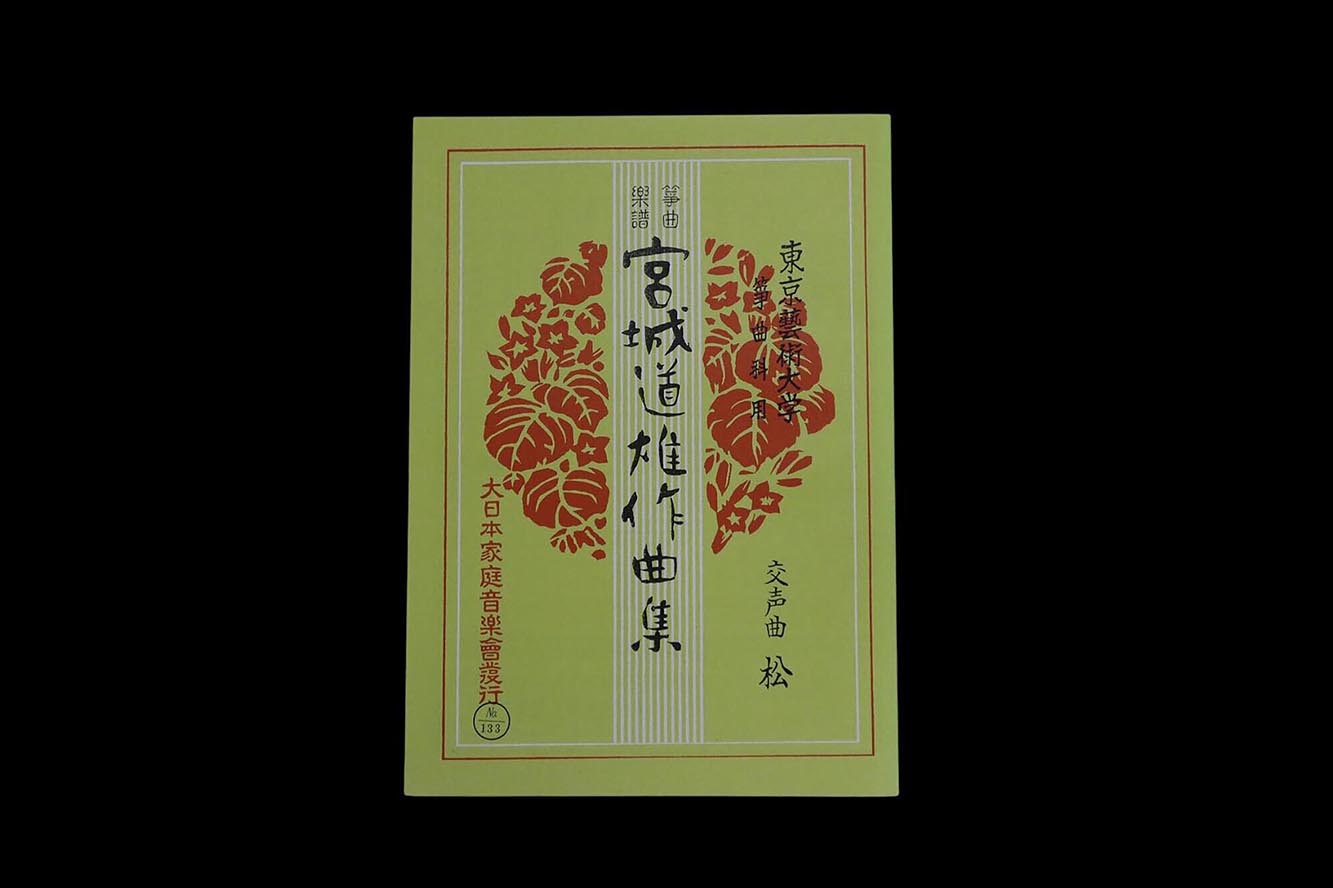 東京藝術大学
箏曲科用
交声曲 松
箏曲
樂譜
宮城道雄作曲集
大日本家庭音楽會發行
No.
133